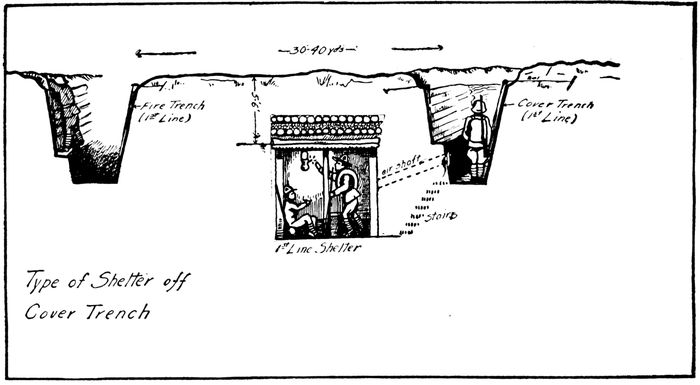 30-40 yds
Fire Trench
(1st Line)
Cover Trench
(1st Line)
air shaft
stairs
1st Line Shelter
Type of Shelter off
Cover Trench